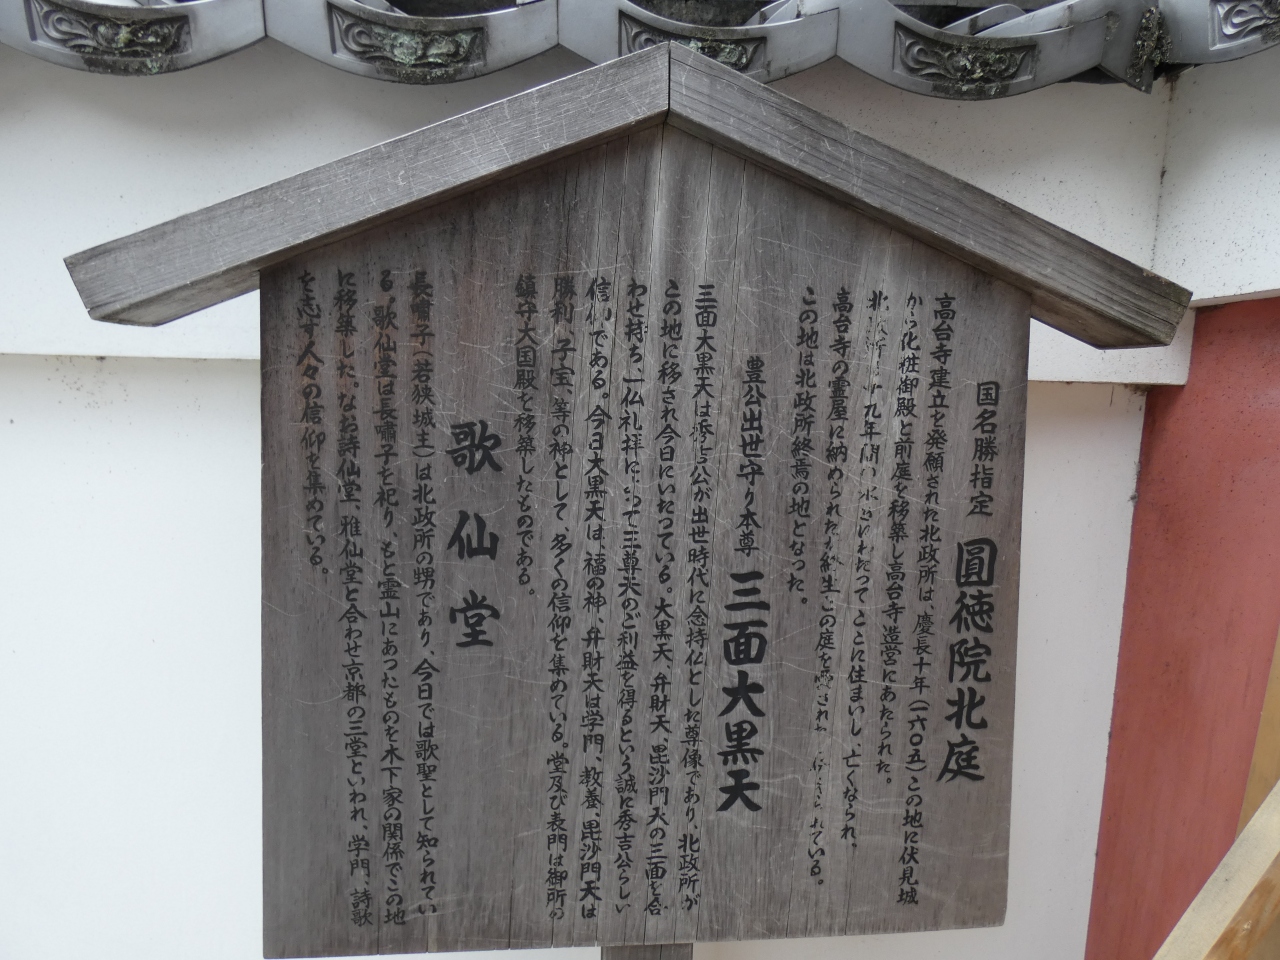 国名勝指定 圓徳院北庭
高台寺建立を発願された北政所は、慶長十年(一六〇五)この地に伏見城
から化粧御殿と前庭を移築し高台寺造営にあたられた。
北政所は十九年間の永きにわたってここに住まいし、亡くなられ、
高台寺の霊屋に納められたが終生この庭を愛され
れている。
この地は北政所終焉の地となった。
豊公出世守り本尊 三面大黒天
三面大黒天は秀吉公が出世時代に念持仏とした尊像であり、北政所が
この地に移され今日にいたっている。大黒天、弁財天、毘沙門天の三面を合
わせ持ち、一仏礼拝によって三尊天のご利益を得るという誠に秀吉公らしい
信仰である。今日大黒天は、福の神、弁財天は学門、教養、毘沙門天は
勝利、子宝、等の神として、多くの信仰を集めている。堂及び表門は御所の
鎮守大国殿を移築したものである。
歌仙堂
長嘯子(若狭城主)は北政所の甥であり、今日では歌聖として知られてい
る。歌仙堂は長嘯子を祀り、もと霊山にあったものを木下家の関係でこの地
に移築した。なお詩仙堂、雅仙堂と合わせ京都の三堂といわれ、学門、詩歌
を志す人々の信仰を集めている。